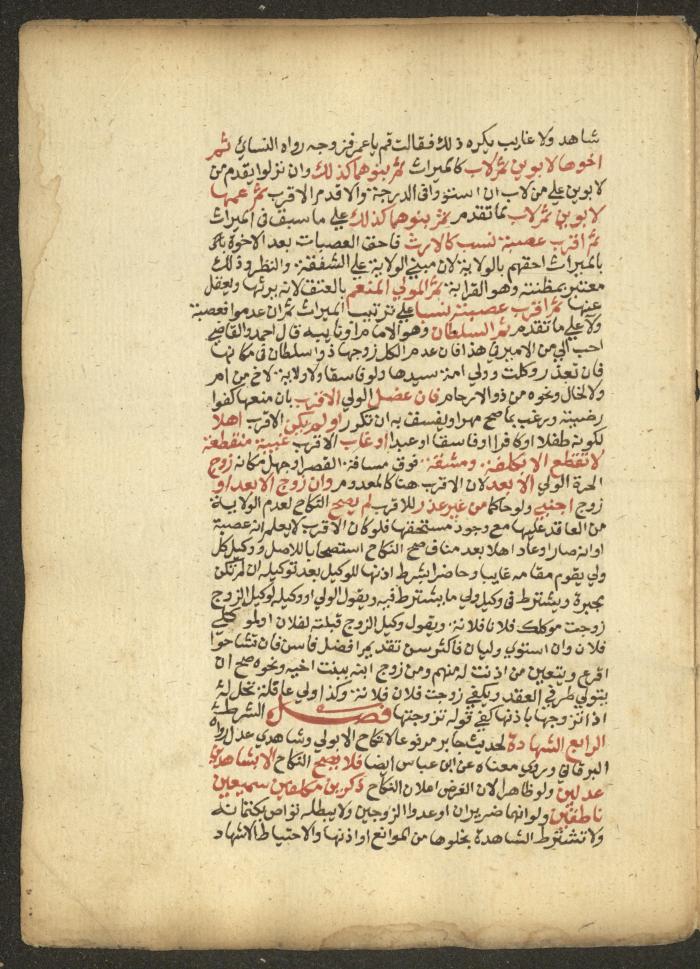 شاهد ولا غايب يكره ذلك فقالت قم يا عمر فزوجه رواه النسائي ثم
اخوها لابوين ثم لاب كالميراث ثم بنوهما كذلك وان نزلوا يقدم من
لابوين علي من لاب ان استووا في الدرجة والا قدم الاقرب ثم عمها
لابوين ثم لاب لما تقدم ثم بنوهما كذلك علي ما سبق في الميراث
ثم اقرب عصبة نسب كالارث فاحق العصبات بعد الاخوة
بالميراث احقهم بالولاية لان مبني الولاية علي الشفقة والنظر وذلك
معتبر بمظنته وهو القرابة ثم المولي المنعم بالعتق لانه يرثها ويعقل
عنها ثم اقرب عصبته نسبا علي ترتيب الميراث ثم ان عدموا فعصبة
ولاء علي ما تقدم ثم السلطان وهو الامام او نايبه قال احمد والقاضي
احب الي من الامير في هذا فان عدم الكل زوجها ذو سلطان في مكانها
فان تعذر وكلت وولي امة سيدها ولو فاسقا ولا ولاية لاخ من ام
ولا لخال ونحوه من ذوي الارحام فان عضل الولي الاقرب بان منعها كفوا
رضيته ورغب بما صح مهرا ويفسق به ان تكرر او لم يكن الاقرب اهلا
لكونه طفلا او كافرا او فاسقا او عبدا او غاب الاقرب غيبة منقطعة
لا تقطع الا بكلفة ومشقة فوق مسافة القصر او جهل مكانه زوج
الحرة الولي الابعد لان الاقرب هنا كالمعدوم وان زوج الابعد او
زوج اجنبي ولو حاكما من غير عذر للاقرب لم يصح النكاح لعدم الولاية
من العاقد عليها مع وجود مستحقها فلو كان الاقرب لا يعلم انه عصبة
او انه صار او عاد اهلا بعد مناف صح النكاح استصحابا للاصل ووكيل كل
ولي يقوم مقامه غايبا وحاضرا بشرط اذنها للوكيل بعد توكيله ان لم تكن
مجبرة ويشترط في وكيل ولي ما يشترط فيه ويقول الولي او وكيله لوكيل الزوج
زوجت موكلك فلانا فلانة ويقول وكيل الزوج قبلته لفلان او لموكلي
فلان وان استوي وليان فاكثر سن تقديم افضل فاسن فان تشاحوا
اقرع ويتعين من اذنت له منهم ومن زوج ابنه ببنت اخيه ونحوه صح ان
يتولي طرفي العقد ويكفي زوجت فلان فلانة وكذا ولي عاقلة تحل له
اذا تزوجها باذنها كفي قوله تزوجتها فصل الشرط
الرابع الشهادة لحديث جابر مرفوعا لا نكاح الا بولي وشاهدي عدل رواه
البرقاني وروي معناه عن ابن عباس ايضا فلا يصح النكاح الا بشاهدين
عدلين ولو ظاهرا لان الغرض اعلان النكاح ذكرين مكلفين سميعين
ناطقين ولو انهما ضريران او عدوا الزوجين ولا يبطله تواص بكتمانه
ولا تشترط الشهادة بخلوها من الموانع او اذنها والاحتياط الاشهاد